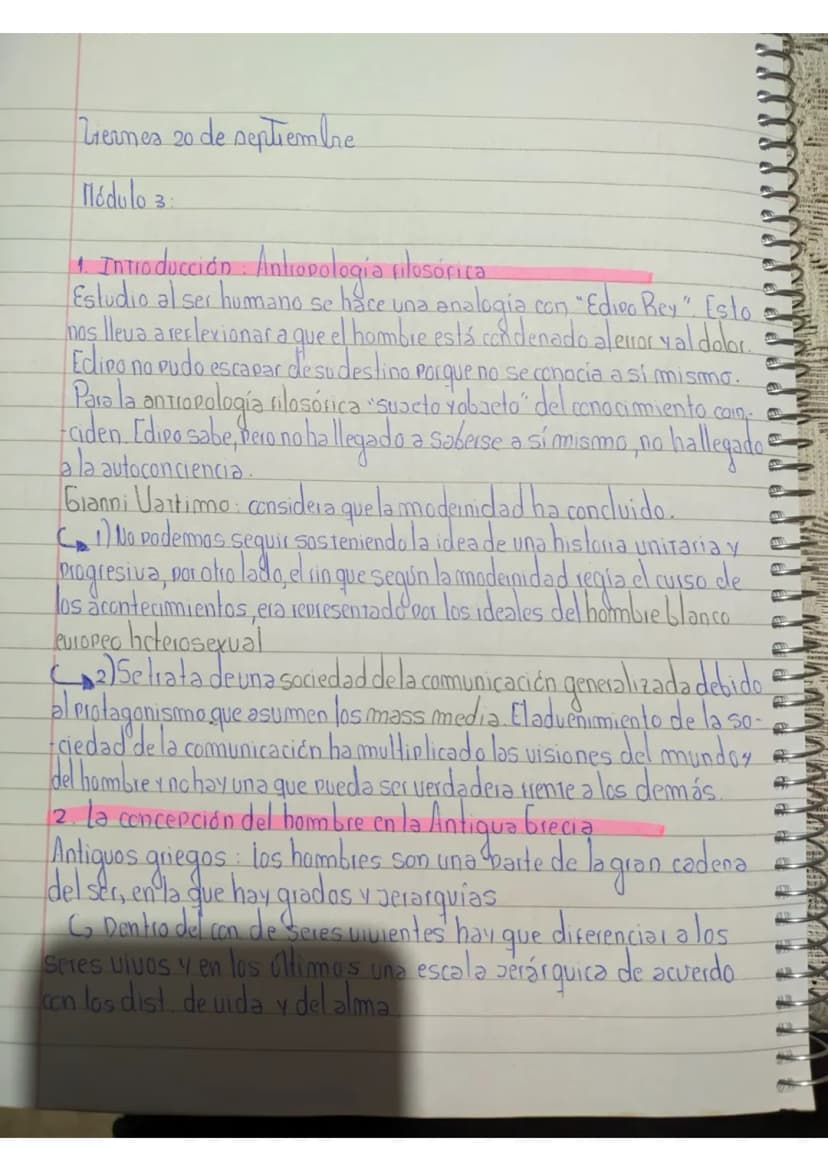 Viernes 20 de septiembre
Módulo 3:
1. Introducción: Antropología filosófica
Estudio al ser humano se hace una analogía con "Edipo Rey". Esto
nos lleva a reflexionar a que el hombre está condenado al error y al dolor.
Edipo no pudo escapar de su destino porque no se conocía a sí mismo.
Para la antropología filosófica "sujeto y objeto" del conocimiento coin-
-ciden. Edipo sabe, pero no ha llegado a saberse a sí mismo, no ha llegado
a la autoconciencia.
Gianni Vattimo: considera que la modernidad ha concluido.
↳ 1) No podemos seguir sosteniendo la idea de una historia unitaria y
progresiva, por otro lado, el fin que según la modernidad regía el curso de
los acontecimientos, era representado por los ideales del hombre blanco
europeo heterosexual
↳ 2) Se trata de una sociedad de la comunicación generalizada debido
al protagonismo que asumen los mass media. El advenimiento de la so-
-ciedad de la comunicación ha multiplicado las visiones del mundo y
del hombre y no hay una que pueda ser verdadera frente a los demás.
2. La concepción del hombre en la Antigua Grecia
Antiguos griegos: los hombres son una parte de la gran cadena
del ser, en la que hay grados y jerarquías
↳ Dentro del con de seres vivientes hay que diferenciar a los
seres vivos y en los últimos una escala jerárquica de acuerdo
con los dist. de vida y del alma